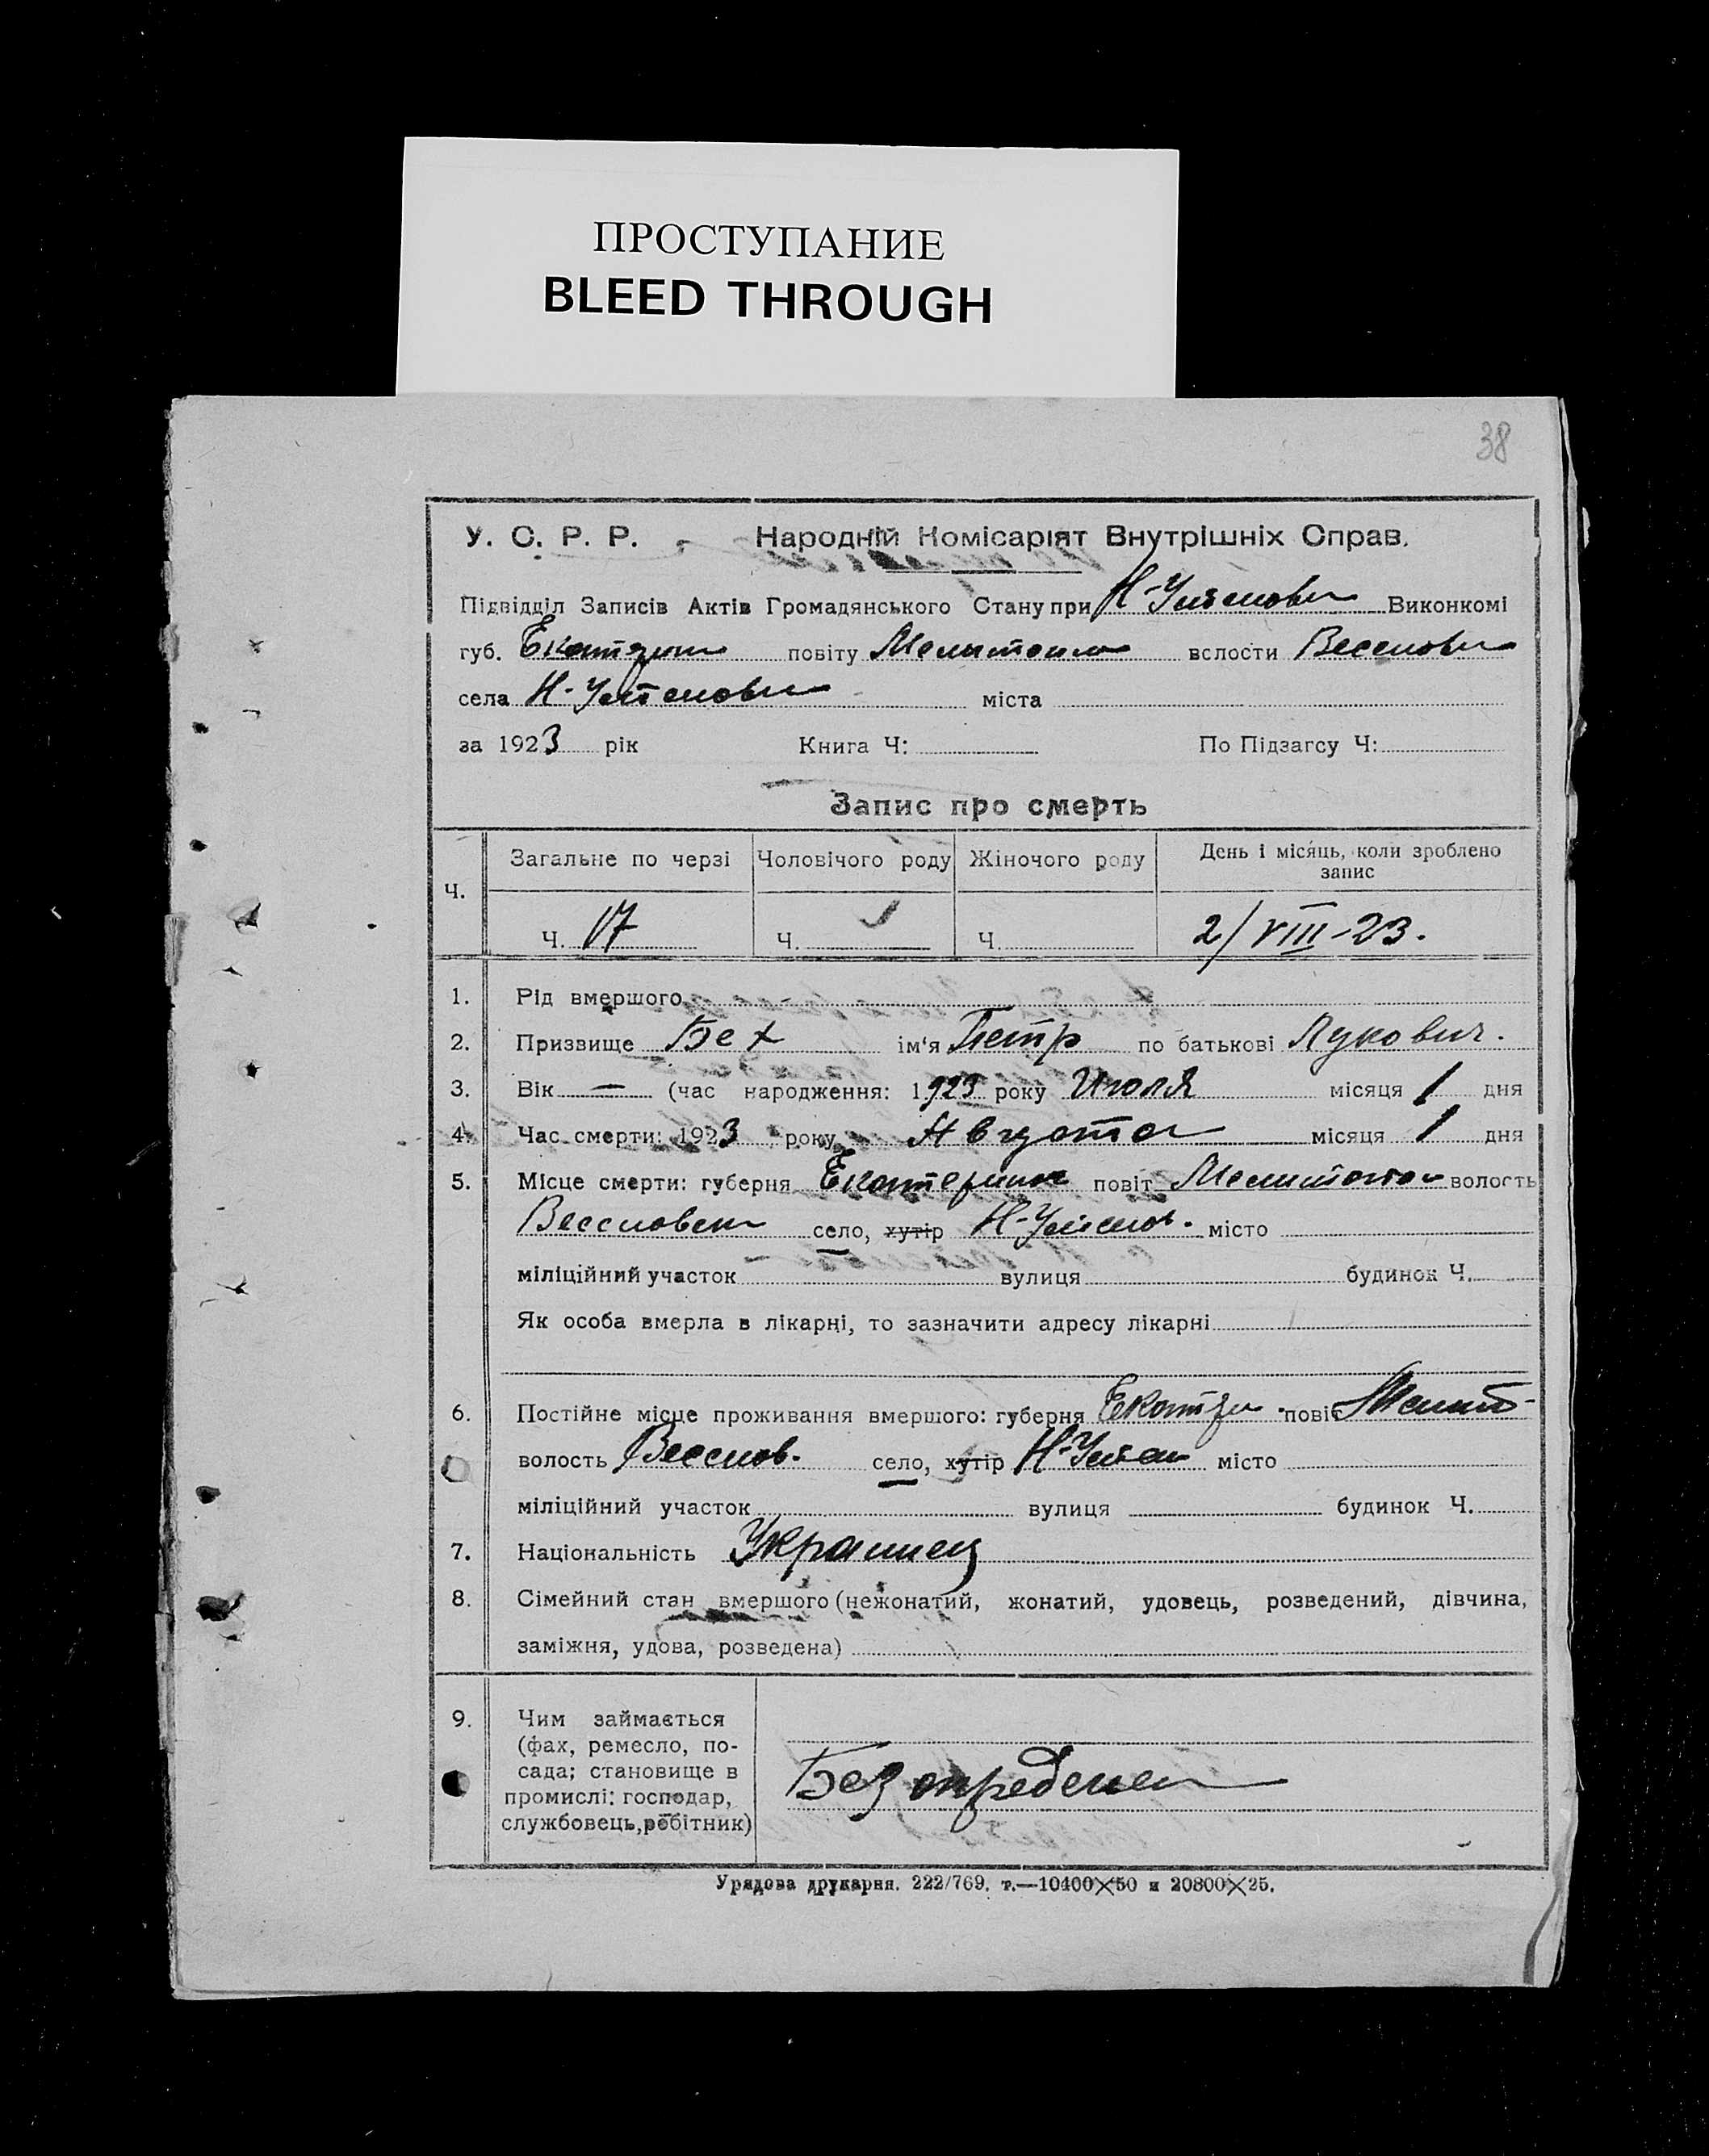 ПРОСТУПАНИЕ
BLEED THROUGH
38
У. С. Р. Р. Народній Комісаріят Внутрішніх Справ.
Підвідділ Записів Актів Громадянського Стану при Виконкомі
губ. повіту вслости
села міста
за 1923 рік Книга Ч: По Підзагсу Ч:
Запис про смерть
Ч. Загальне по черзі Чоловічого роду Жіночого роду День і місяць, коли зроблено запис
Ч. 17 Ч. Ч. 2/VIII-23.
1. Рід вмершого
2. Призвище Бех ім'я Петр по батькові Лукович.
3. Вік — (час народження: 1923 року Июля місяця 1 дня
4. Час смерти: 1923 року Августа місяця 1 дня
5. Місце смерти: губерня Екатерин повіт волость
село, хутір місто
міліційний участок вулиця будинок Ч.
Як особа вмерла в лікарні, то зазначити адресу лікарні
6. Постійне місце проживання вмершого: губерня повіт Мелит-
волость Веселов. село, хутір місто
міліційний участок вулиця будинок Ч.
7. Національність Украинец
8. Сімейний стан вмершого (нежонатий, жонатий, удовець, розведений, дівчина,
заміжня, удова, розведена)
9. Чим займається
(фах, ремесло, по-
сада; становище в
промислі: господар,
службовець, робітник)
Без определен
Урядова друкарня. 222/769. т.—10400×50 и 20800×25.